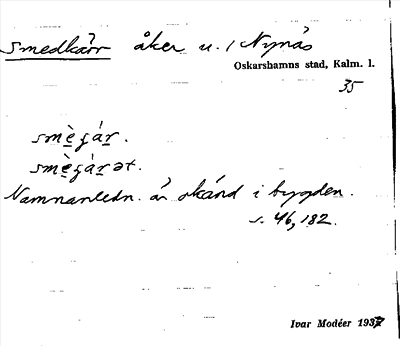 Smedkärr åker u. / Nynäs
Oskarshamns stad, Kalm. l.
35
smè̱gáṟ.
smè̱gáṟət.
Namnanledn. är okänd i bygden.
s. 46, 182.
Ivar Modéer 1937